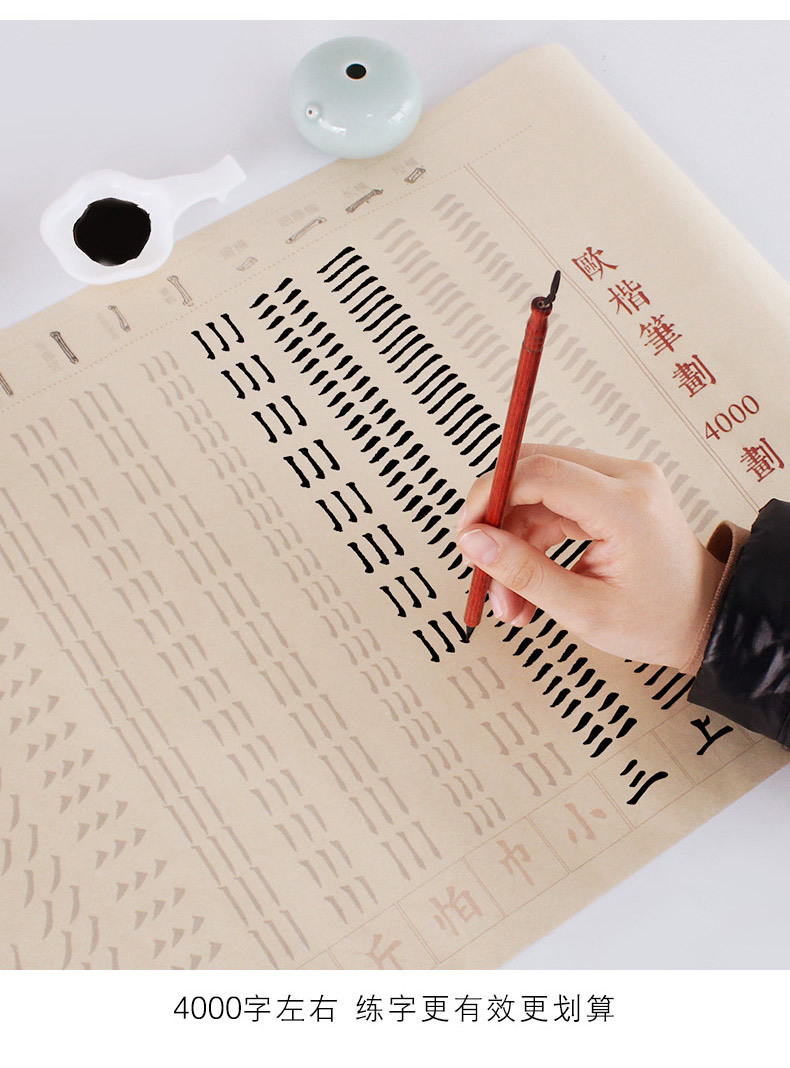 歐楷筆劃4000劃
上
三
小
巾
怕
斤
4000字左右 练字更有效更划算